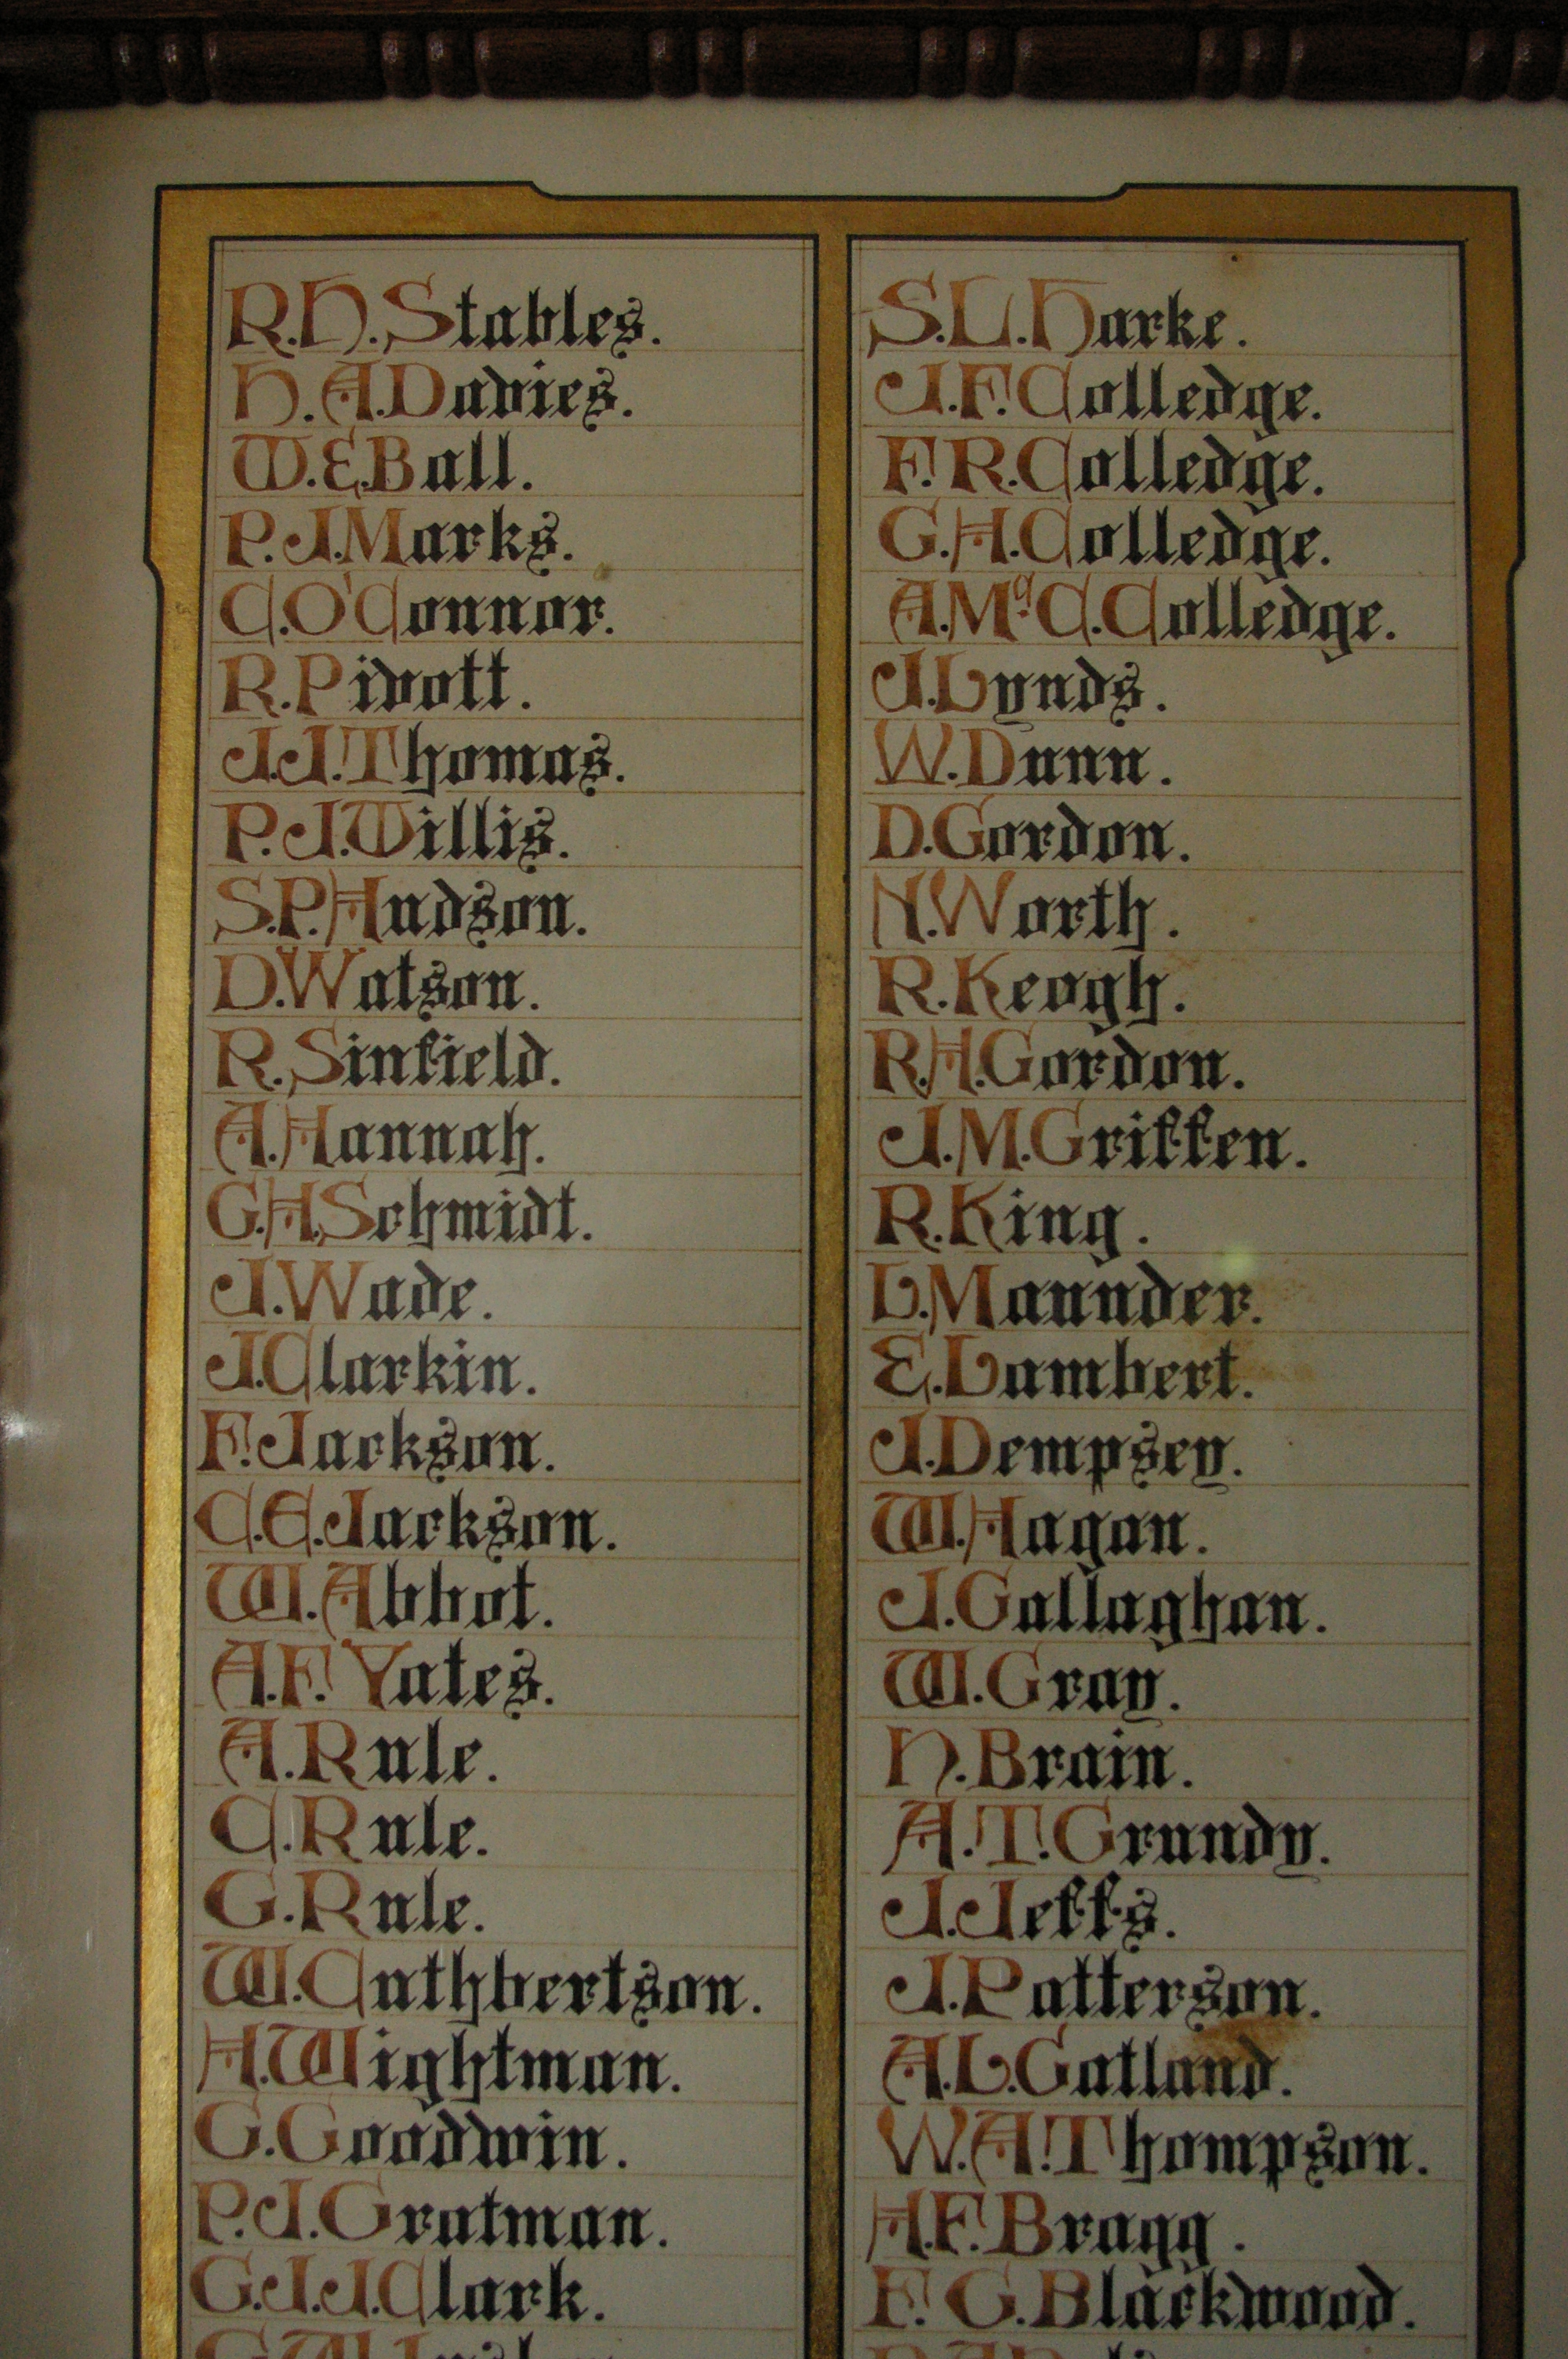 R.H.Stables.
H.A.Davies.
W.E.Ball.
P.J.Marks.
C.O'Connor.
R.Pivott.
J.J.Thomas.
P.J.Willis.
S.P.Hudson.
D.Watson.
R.Sinfield.
A.Hannah.
G.H.Schmidt.
J.Wade.
J.Clarkin.
F.Jackson.
C.E.Jackson.
W.Abbot.
A.F.Yates.
A.Rule.
C.Rule.
G.Rule.
W.Cuthbertson.
H.Wightman.
G.Goodwin.
P.J.Gratman.
G.J.J.Clark.
S.L.Harke.
J.F.Colledge.
F.R.Colledge.
G.H.Colledge.
A.Mc.C.Colledge.
J.Lynds.
W.Dunn.
D.Gordon.
N.Worth.
R.Keogh.
R.H.Gordon.
J.M.Griffen.
R.King.
L.Maunder.
E.Lambert.
J.Dempsey.
W.Hagan.
J.Gallaghan.
W.Gray.
H.Brain.
A.T.Grundy.
J.Jeffs.
J.Patterson.
A.L.Gatland.
W.A.Thompson.
H.F.Bragg.
F.G.Blackwood.